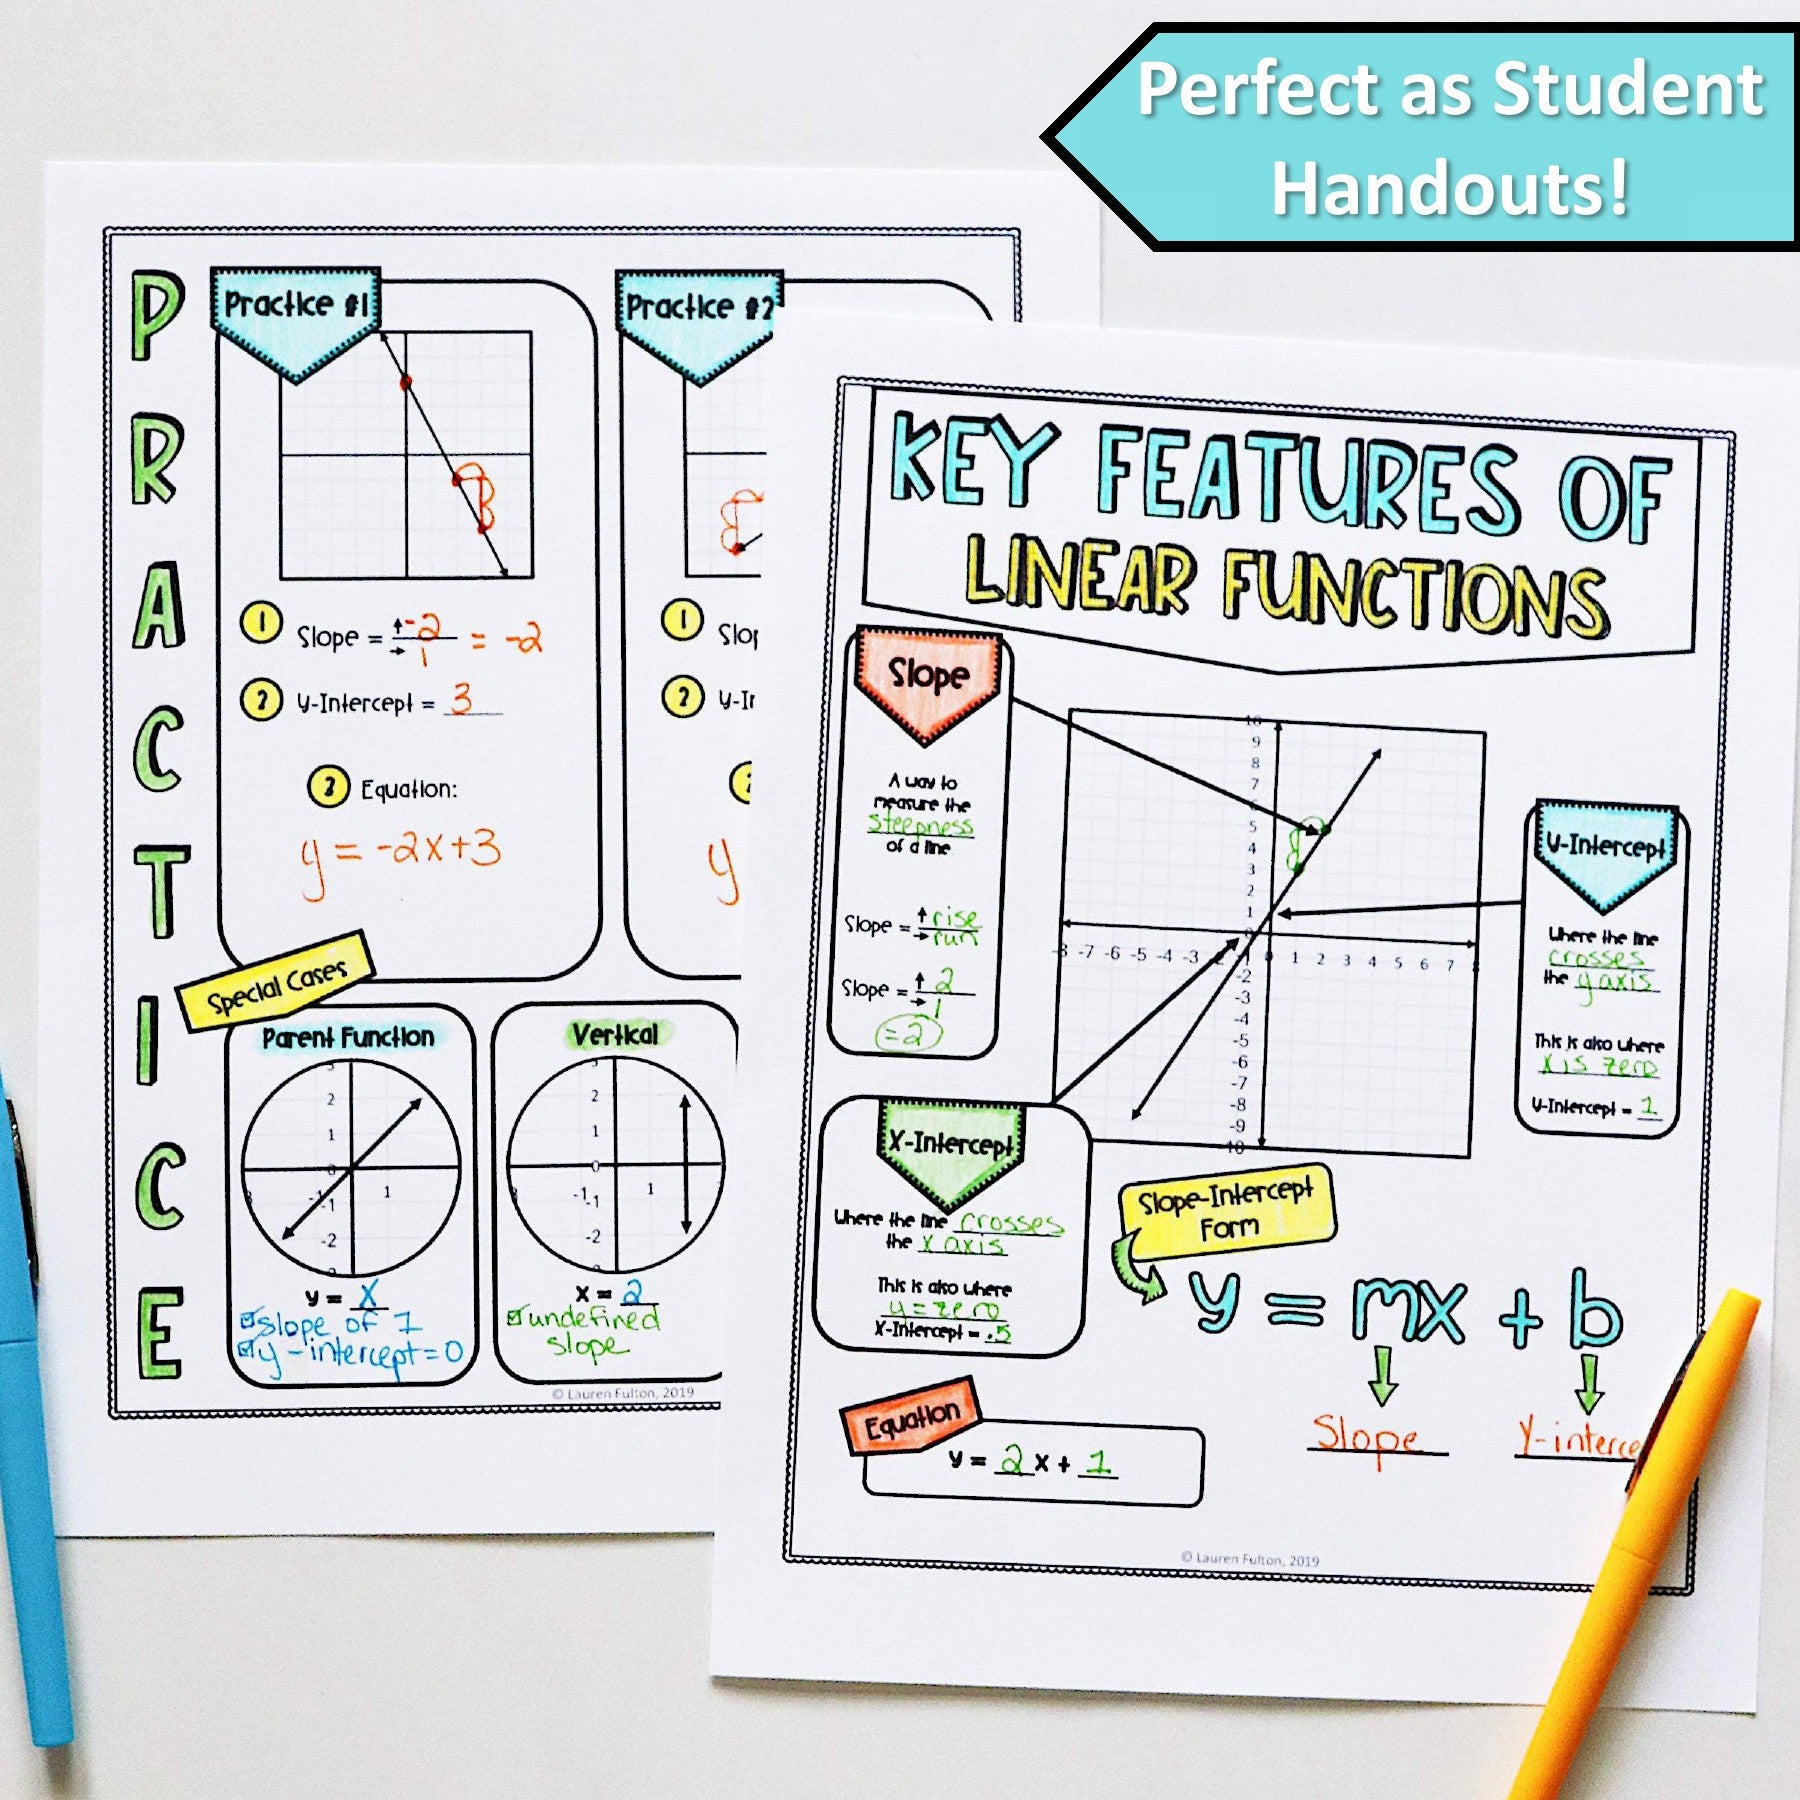 Perfect as Student
Handouts!
PRACTICE
Practice #1
1 Slope = -2 / 1 = -2
2 Y-Intercept = 3
3 Equation:
y = -2x+3
Practice #2
1
2
y
Special Cases
Parent Function
2
1
0
-1 1
-1
-2
y = x
slope of 1
y-intercept=0
Vertical
2
1
0
-1 1
-1
-2
x = 2
undefined
slope
© Lauren Fulton, 2019
KEY FEATURES OF
LINEAR FUNCTIONS
Slope
A way to
measure the
steepness
of a line
Slope = rise
run
Slope = 2
1
=2
10
9
8
7
6
5
4
3
2
1
0
-8 -7 -6 -5 -4 -3 -2 -1 0 1 2 3 4 5 6 7 8
-2
-3
-4
-5
-6
-7
-8
-9
-10
Y-Intercept
Where the line
crosses
the y axis
This is also where
x is zero
Y-Intercept = 1
X-Intercept
Where the line crosses
the x axis
This is also where
y = zero
X-Intercept = .5
Slope-Intercept
Form
y = mx + b
Slope
Equation
y = 2 x + 1
© Lauren Fulton, 2019